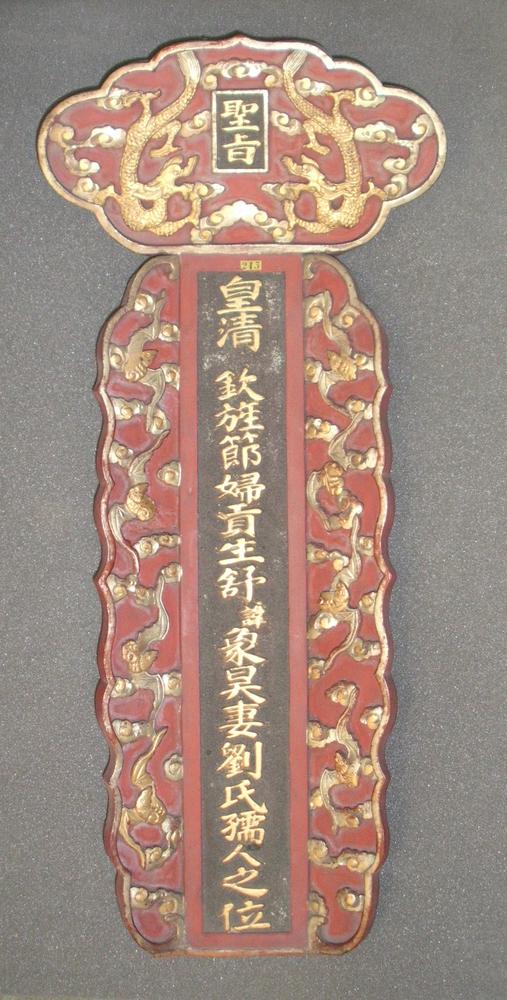 聖旨
213
皇清 欽旌節婦貢生舒諱象昊妻劉氏孺人之位